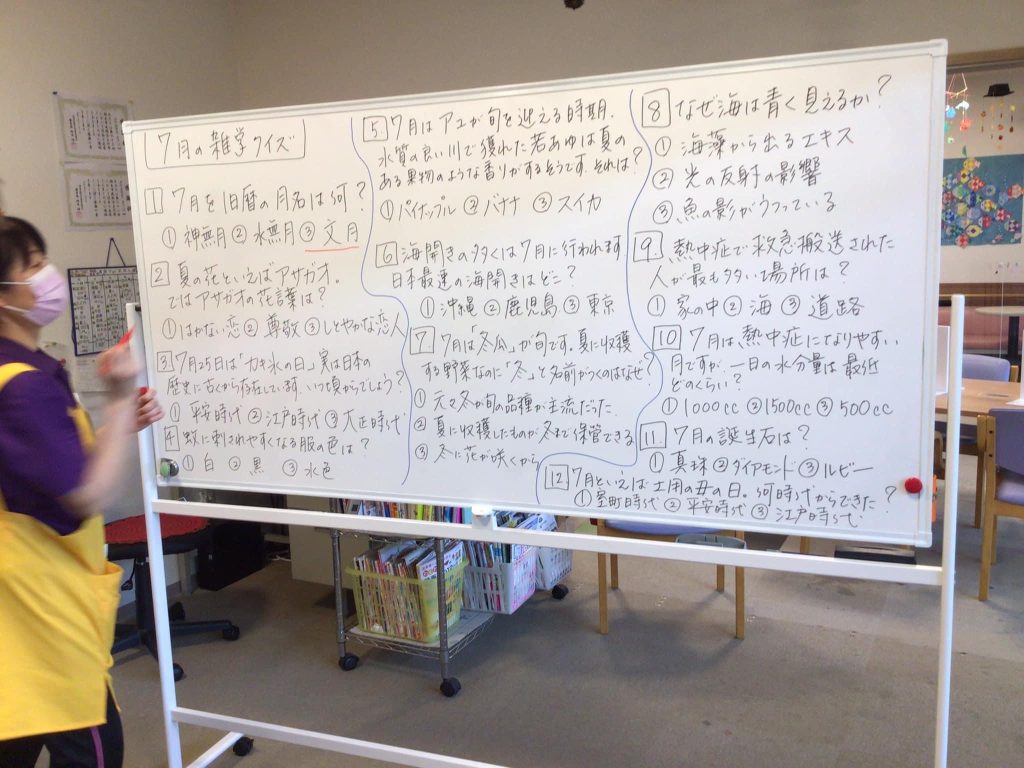 7月の雑学クイズ
1 7月を旧暦の月名は何?
① 神無月 ② 水無月 ③ 文月
2 夏の花といえばアサガオ。
ではアサガオの花言葉は?
① はかない恋 ② 尊敬 ③ しとやかな恋人
3 7月25日は「カキ氷の日」実は日本の
歴史に古くから存在しています、いつ頃からでしょう?
① 平安時代 ② 江戸時代 ③ 大正時代
4 蚊に刺されやすくなる服の色は?
① 白 ② 黒 ③ 水色
5 7月はアユが旬を迎える時期、
水質の良い川で獲れた若あゆは夏の
ある果物のような香りがするそうです。それは?
① パイナップル ② バナナ ③ スイカ
6 海開きの多くは7月に行われます
日本最速の海開きはどこ?
① 沖縄 ② 鹿児島 ③ 東京
7 7月は「冬瓜」が旬です。夏に収穫
する野菜なのに「冬」と名前がつくのはなぜ?
① 元々冬が旬の品種が主流だった
② 夏に収穫したものが冬まで保管できる
③ 冬に花が咲くから
8 なぜ海は青く見えるか?
① 海藻から出るエキス
② 光の反射の影響
③ 魚の影がうつっている
9 熱中症で救急搬送された
人が最も多い場所は?
① 家の中 ② 海 ③ 道路
10 7月は熱中症になりやすい
月ですが、一日の水分量は最近
どのくらい?
① 1000cc ② 1500cc ③ 500cc
11 7月の誕生石は?
① 真珠 ② ダイアモンド ③ ルビー
12 7月といえば土用の丑の日。何時代からできた?
① 室町時代 ② 平安時代 ③ 江戸時代